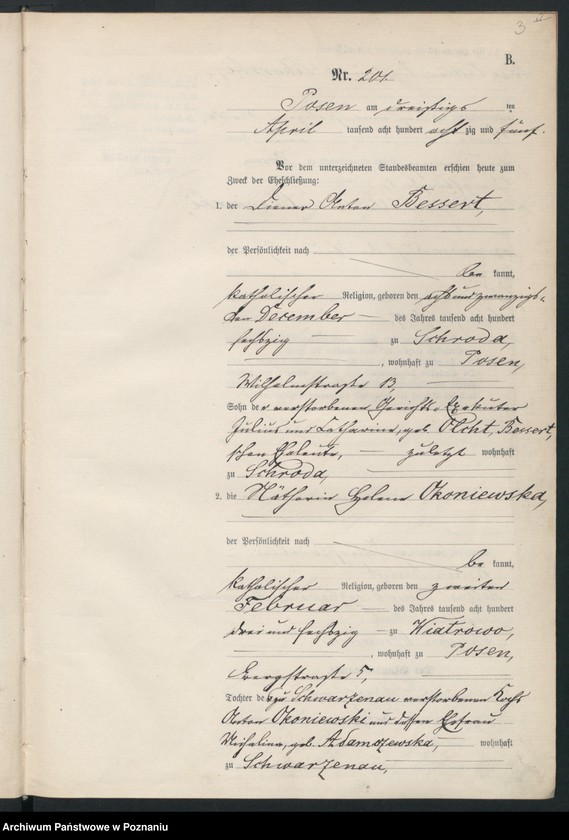 3
B.
Nr. 201
Posen am dreißigs ten
April tausend acht hundert acht zig und fünf.
Vor dem unterzeichneten Standesbeamten erschien heute zum
Zweck der Eheschließung:
1. der Diener Anton Bessert,
der Persönlichkeit nach
be kannt,
katholischer Religion, geboren den achtundzwanzigs-
ten Dezember des Jahres tausend acht hundert
sechszig zu Schroda,
, wohnhaft zu Posen,
Wilhelmstraße 13,
Sohn der verstorbenen Gerichts-Exekutor
Julius und Catharina, geb. Olcht, Bessert,
schen Eheleute, zuletzt wohnhaft
zu Schroda,
2. die Nätherin Helena Okoniewska,
der Persönlichkeit nach
be kannt,
katholischer Religion, geboren den zweiten
Februar des Jahres tausend acht hundert
drei und sechszig zu Wiatrowo,
, wohnhaft zu Posen,
Bergstraße 5,
Tochter des zu Schwarzenau verstorbenen Kochs
Anton Okoniewski und dessen Ehefrau
Michalina, geb. Adamczewska, wohnhaft
zu Schwarzenau,
Archiwum Państwowe w Poznaniu